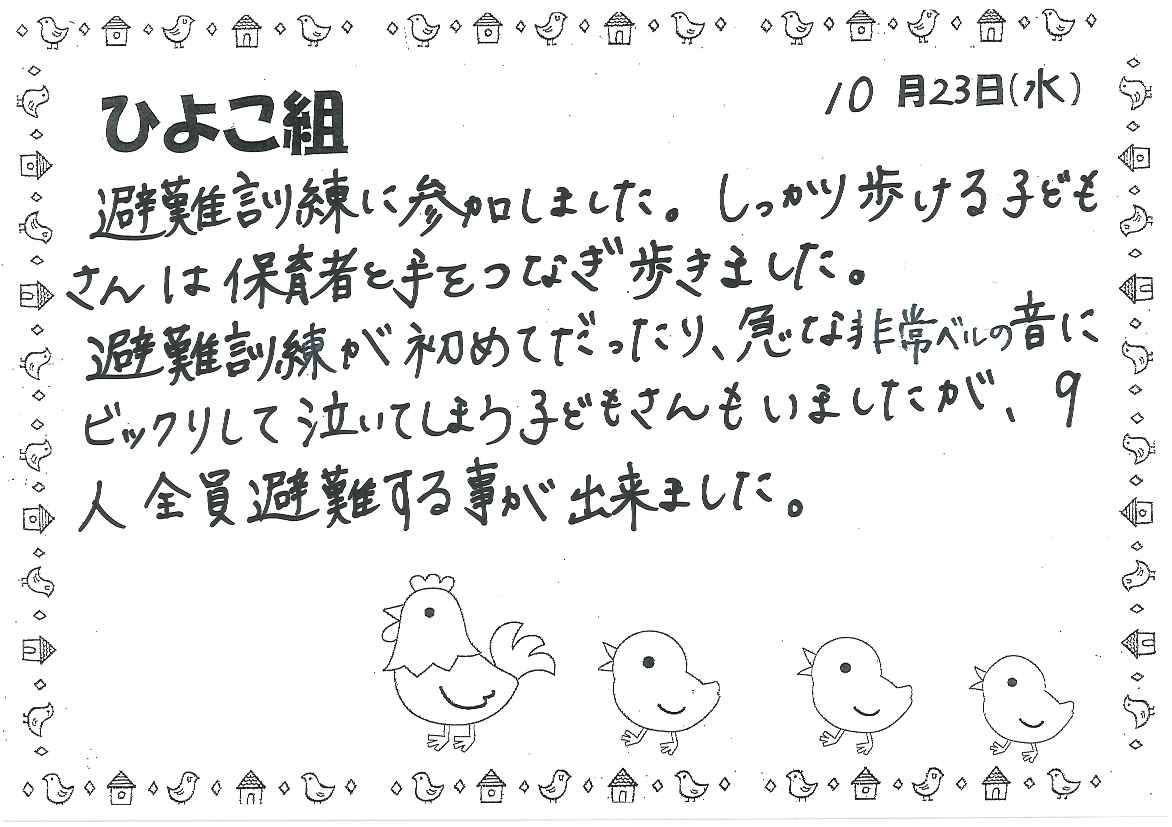 ひよこ組
10月23日(水)
避難訓練に参加しました。しっかり歩ける子ども
さんは保育者と手をつなぎ歩きました。
避難訓練が初めてだったり、急な非常ベルの音に
ビックリして泣いてしまう子どもさんもいましたが、9
人全員避難する事が出来ました。